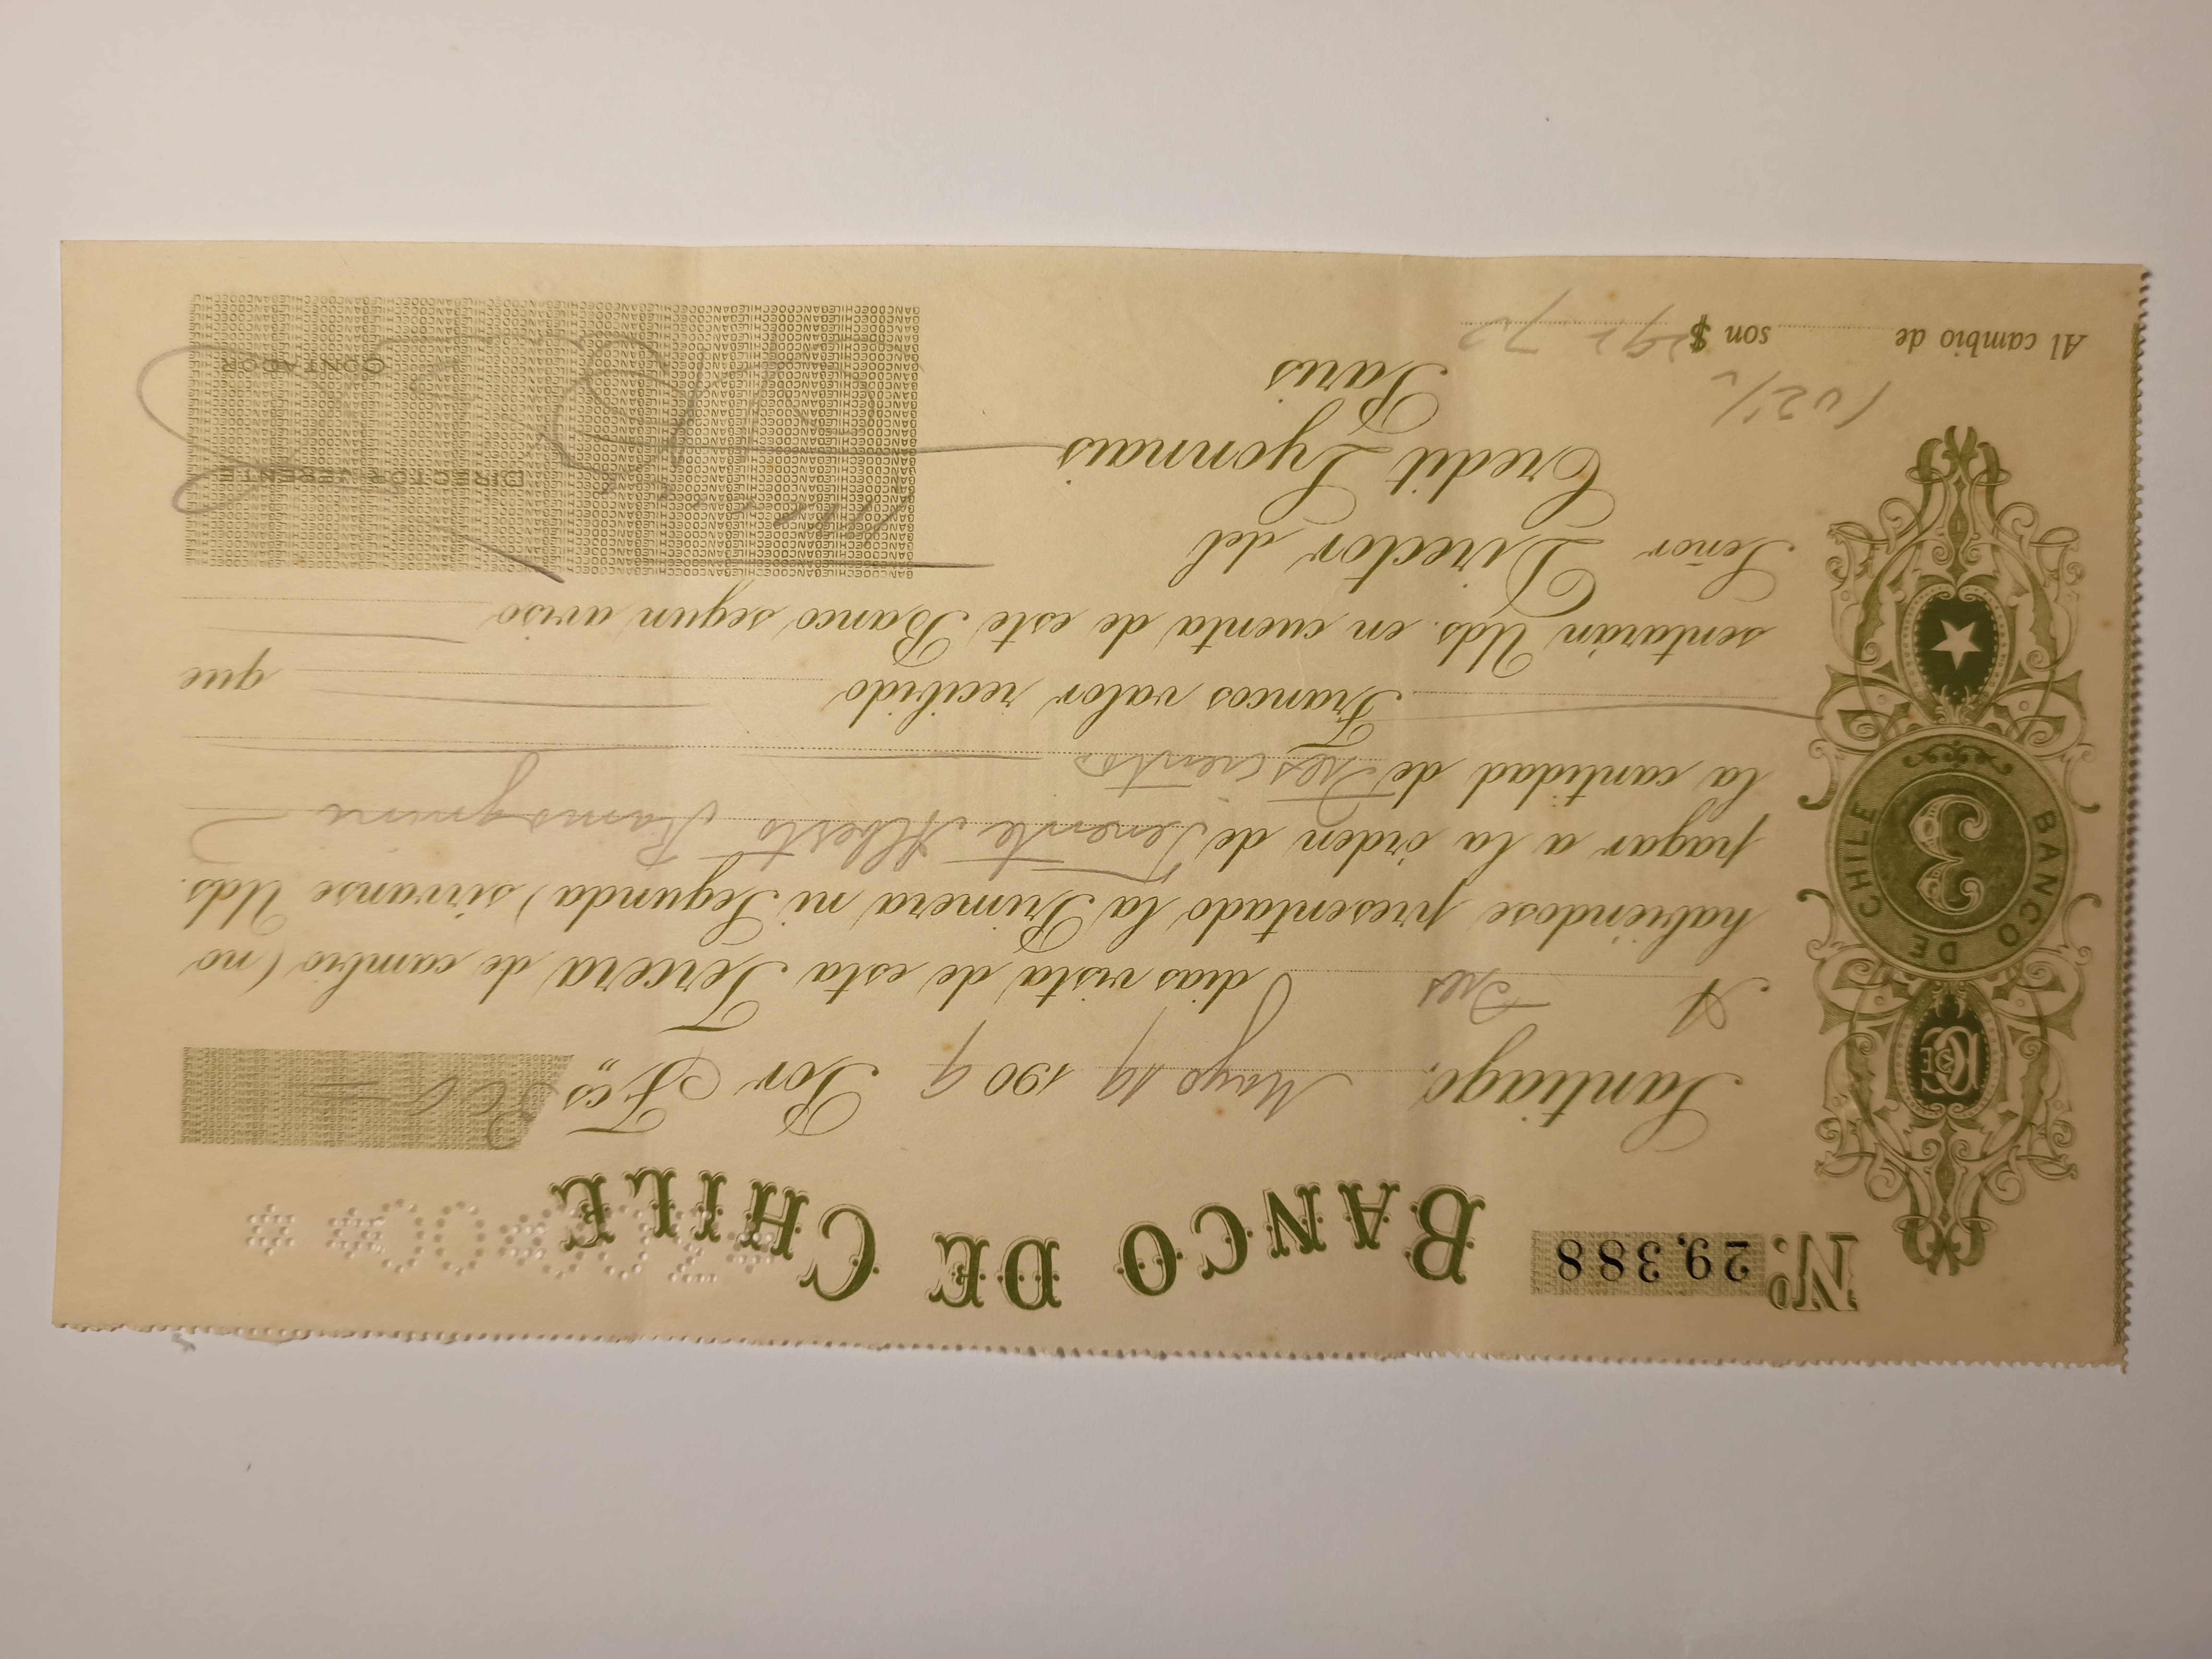 Nº 29,388 BANCO DE CHILE
Santiago, Mayo 19 1909 Por Fcs,, 300
A Tres dias vista de esta Tercera de cambio (no
habiéndose presentado la Primera ni Segunda) sirvanse Uds.
pagar a la órden de Teniente Alberto
la cantidad de Trescientos
Francos valor recibido que
sentarán Uds. en cuenta de este Banco segun aviso
Señor Director del
Credit Lyonnais
Paris
DIRECTOR GERENTE
CONTADOR
Al cambio de son $
BANCO DE CHILE
3